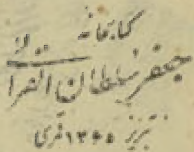 کتابخانه
جعفر سلطان القرائی
تبریز ۱۳۶۵ قمری